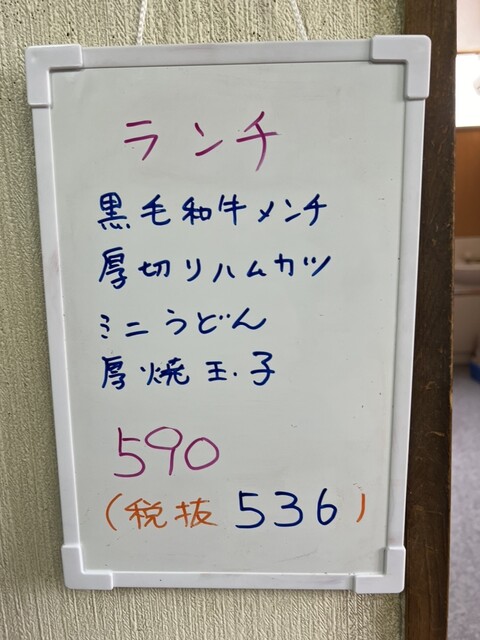 ランチ
黒毛和牛メンチ
厚切りハムカツ
ミニうどん
厚焼玉子
590
(税抜 536)